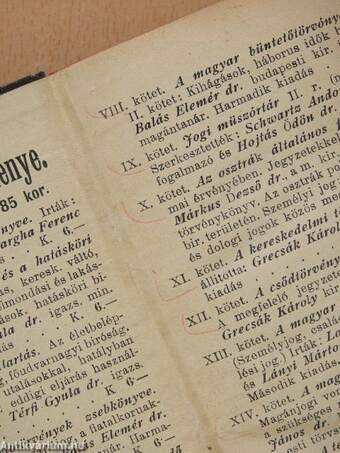 enye.
85 kor.
nyve. Irták:
argha Ferenc
. . K. 6.—
és a hatásköri
ás, keresk. váltó,
elmondási és lakás-
ások, hatásköri bi-
la dr. igazs. min.
. . . K. 6—
tartás. Az életbelép-
g, főudvarnagyi bíróság,
utalásokkal, hatályban
eddigi eljárás használ-
Térfi Gyula dr. igazs.
. . . K 6—
zsebkönyve.
a fiatalkoruak-
Elemér dr.
VIII. kötet. A magyar büntetőtörvény
II. kötet: Kihágások, háborus idők
Balás Elemér dr. budapesti kir.
magántanár. Harmadik kiadás
IX. kötet. Jogi műszótár II. r.
Szerkesztették: Schwartz Andor
fogalmazó és Hojtás Ödön dr.
X. kötet. Az osztrák általános
mai érvényében. Jegyzetekkel
Márkus Dezső dr., a m. kir.
törvénykönyv. Az osztrák
bir. területén. Személyi jog;
és dologi jogok közös
XI. kötet. A kereskedelmi
állította: Grecsák Károly
kiadás
XII. kötet. A csődtörvény
A megfelelő jegyzetekkel
Grecsák Károly
XIII. kötet. A magyar
(Személyjog, család
jesi jog.) Irták:
és Lányi Márto
Második kiadás
XIV. kötet. A mag
Magánjogi
a szükséges
János dr.
antikvarium.hu